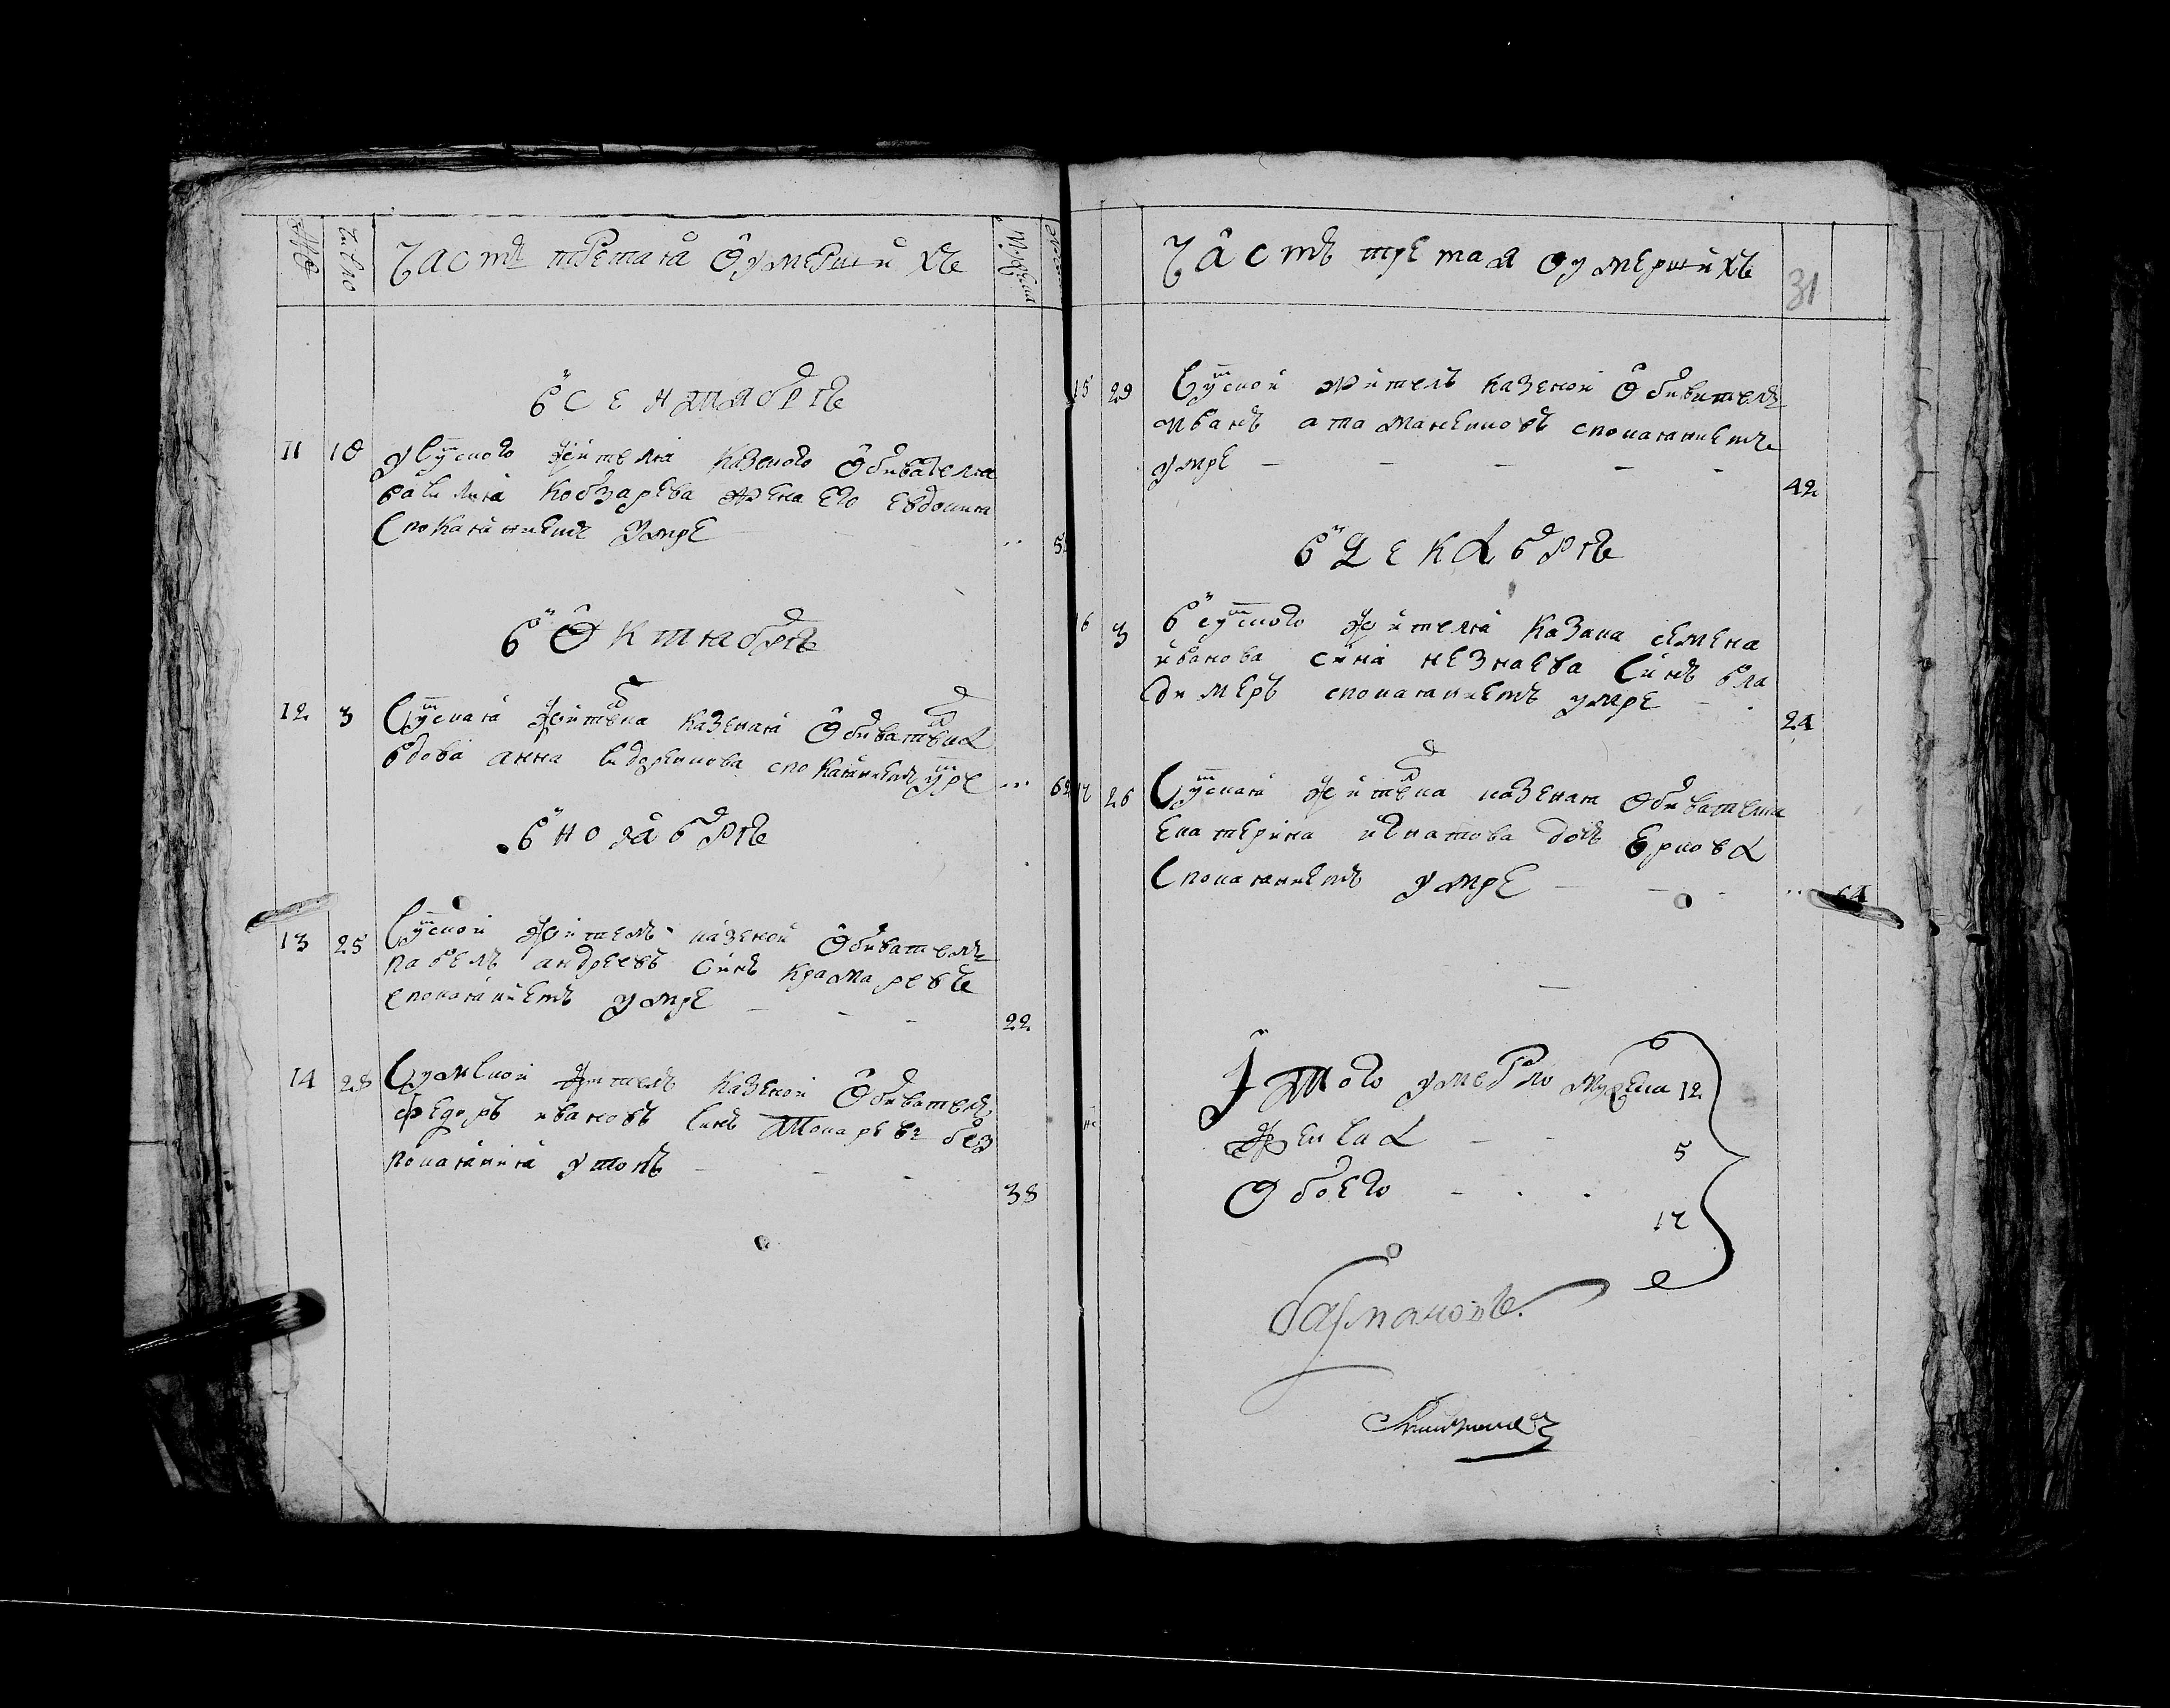 Часть третая о умершихъ
в сентябрѣ
11 10 у сумскаго жителя казеного обивателя
василия кобзарева жена его евдокия
с покаяниемъ умре
в октябрѣ
12 3 сумская жителка казеная обивателка
вдова анна спокаяниемъ умре 62
в ноябрѣ
13 25 сумской житель казеной обиватель
павелъ андреевъ синъ крамаревъ
спокаяниемъ умре
22
14 28 сумской житель казеной обиватель
федоръ ивановъ синъ токаревъ без
покаяния утопъ
38
Часть третая о умершихъ
31
15 29 сумской житель казеной обиватель
иванъ атаманенковъ спокаяниемъ
умре
42
в декабрѣ
16 3 в сумскаго жителя казака семена
иванова сина незнаева синъ вла
димеръ спокаяниемъ умре
24
17 26 сумская жителка казеная обивателка
екатерина игнатова дочь
спокаяниемъ умре
64
Итого умерло мужеска 12
женска 5
обоего
17